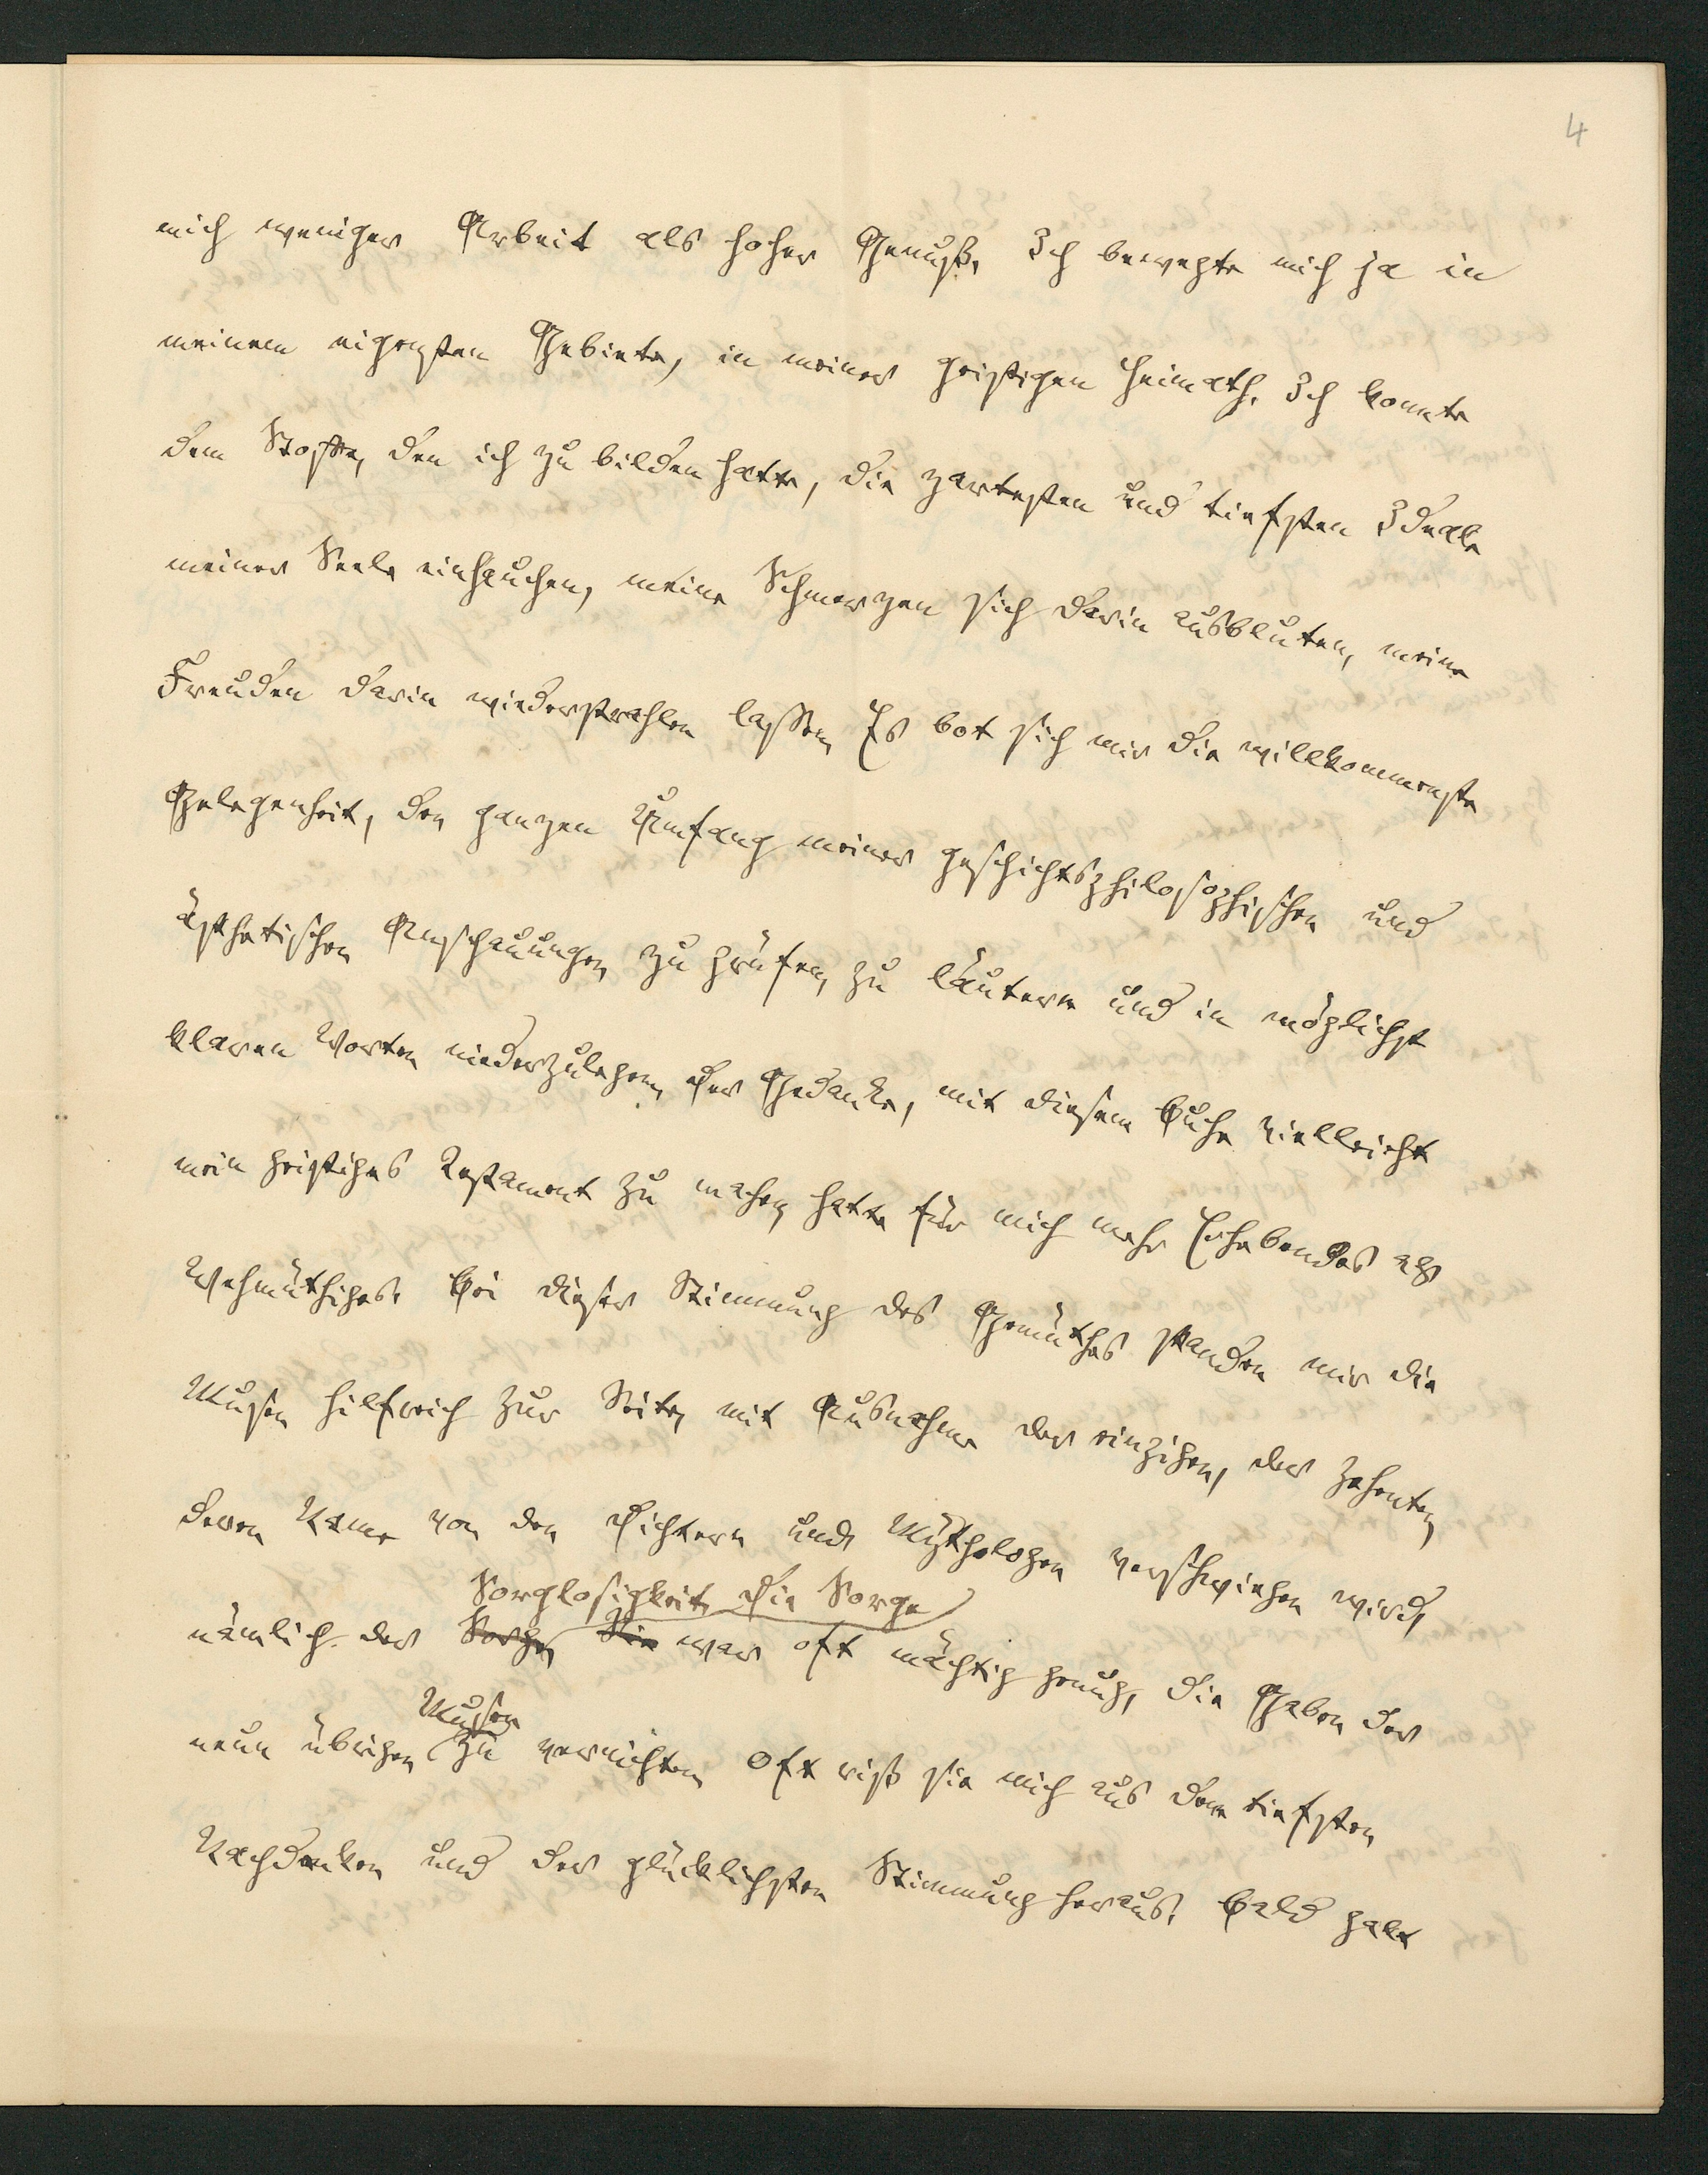 4
mich weniger Arbeit als hoher Genuß. Ich bewegte mich ja in
meinem eigensten Gebiete, in meiner geistigen Heimath. Ich konnte
dem Stoffe, den ich zu bilden hatte, die zartesten und tiefsten Ideale
meiner Seele einhauchen, meine Schmerzen sich darin ausbluten, meine
Freuden darin wiederstrahlen lassen. Es bot sich mir die willkommenste
Gelegenheit, den ganzen Umfang meiner geschichtsphilosophischen und
ästhetischen Anschauungen zu prüfen, zu läutern und in möglichst
klaren Worten niederzulegen. Der Gedanke, mit diesem Buche vielleicht
mein geistiges Testament zu machen, hatte für mich mehr Erhebendes als
Wehmüthiges. Bei dieser Stimmung des Gemüthes standen mir die
Musen hilfreich zur Seite, mit Ausnahme der einzigen, der zehenten,
deren Name von den Dichtern und Mythologen verschwiegen wird,
Sorglosigkeit. Die Sorge
nämlich der Sorge. Sie war oft mächtig genug, die Gaben der
Musen
neun übrigen zu vernichten. Oft riß sie mich aus dem tiefsten
Nachdenken und der glücklichsten Stimmung heraus. Bald galt